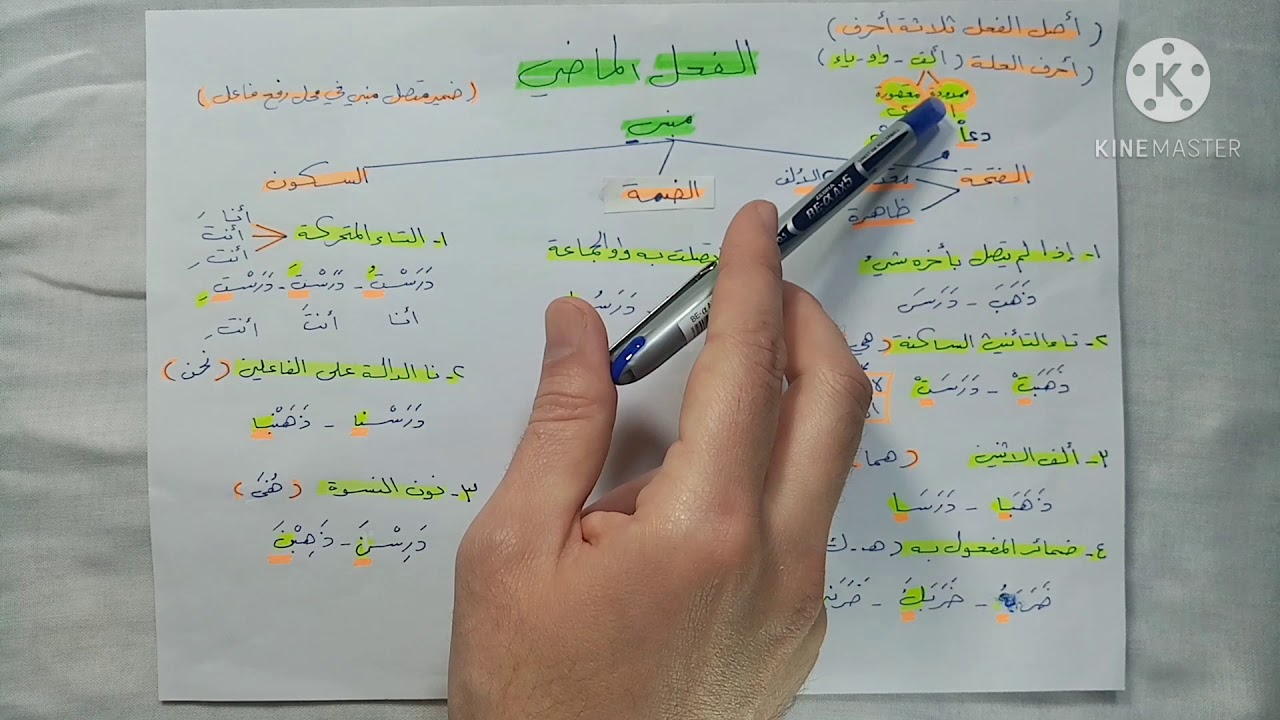 (أصل الفعل ثلاثة أحرف)
(أحرف العلة (ألف - واو - ياء)
ممدودة مقصورة
ا ى
دعا
KINEMASTER
الفعل الماضي
(ضمير متصل مبني في محل رفع فاعل)
مبني
الفتحة
ظاهرة
الضمة
السكون
١- إذا لم يتصل بأخره شيء
ذَهَبَ - دَرَسَ
٢- تاء التأنيث الساكنة (هي
ذَهَبَتْ - دَرَسَتْ
٣- ألف الاثنين (هما)
ذَهَبَا - دَرَسَا
٤- ضمائر المفعول به (هـ - ك
ضَرَبَهُ - ضَرَبَكَ -
به واو الجماعة
١- التاء المتحركة
أنا
أنتَ
أنتِ
دَرَسْتُ - دَرَسْتَ - دَرَسْتِ
أنا أنتَ أنتِ
٢- نا الدالة على الفاعلين (نحن)
دَرَسْنا - ذَهَبْنا
٣- نون النسوة (هُنَّ)
دَرِسْنَ - ذَهِبْنَ
BE-α AX5